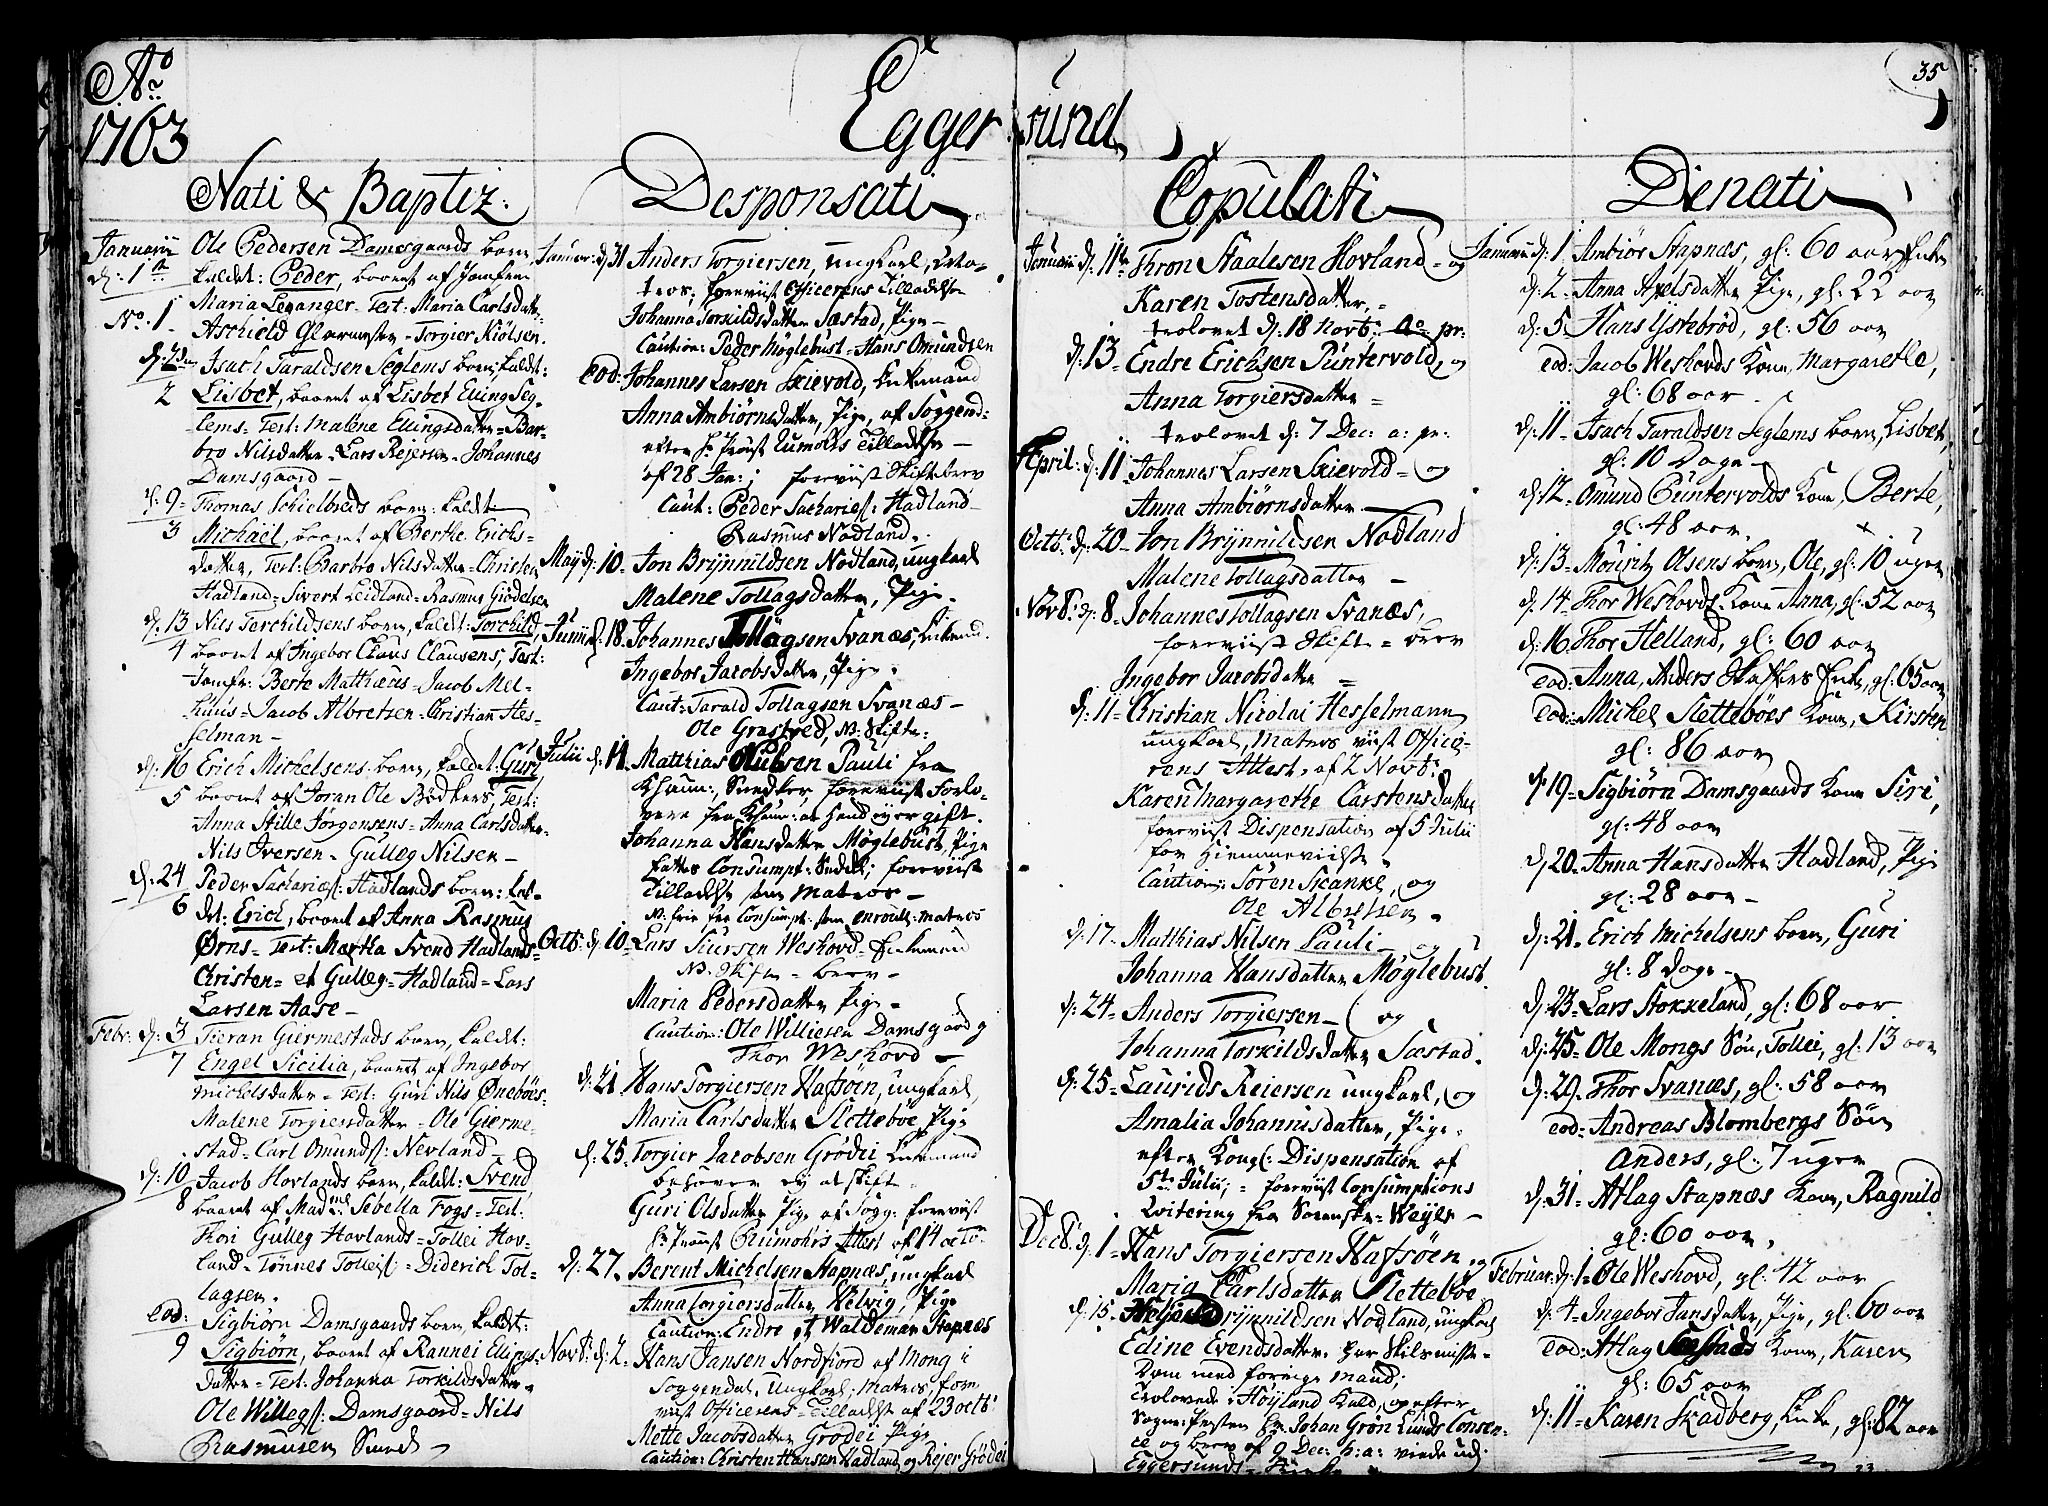 Ao
1763
Eggersund
35
Nati & Baptiz:
Januarii Ole Pedersen Damsgaards barn,
d: 1te kaldt: Peder, baaret af Jomfru
Maria Levanger - Test: Maria Carlsdatter
No. 1 Aschield Glarmester - Torgier Kiölsen.
d: 2den Isach Taraldsen Seglems barn, kaldt:
2 Lisbet, baaret af Lisbet Elling Seg-
lems - Test: Malene Ellingsdatter - Bar-
bro Nilsdatter - Lars Rejersen - Johannes
Damsgaard -
d: 9 - Thomas Schielbreds barn: kaldt
3 Michäel, baaret af Berthe Erichs-
datter, Test: Barbro Nilsdatter - Christen
Hadland - Sivert Leidland - Rasmus Giödelsen
d: 13 Nils Terchildsens barn, kaldt: Torchild,
4 baaret af Ingebor Claus Clausens, Test:
Jomfr: Berte Matthæus - Jacob Mel-
huus - Jacob Albretsen - Christian Hes-
selman -
d: 16 Erich Michelsens barn, kaldet: Guri
5 baaret af Joran Ole Bödkers, Test:
Anna Stille Jörgensens - Anna Carlsdatter -
Nils Iversen - Gulleg Nilsen -
d: 24 Peder Sachariæs: Hadlands barn: kal-
6 det: Erich, baaret af Anna Rasmus
Örns - Test: Martha Svend Hadlands -
Christen - et Gulleg - Hadland - Lars
Larsen Aase -
Febr: d: 3 Tieran Giermestads barn, kaldt:
7 Engel Sicilia, baaret af Ingebor
Michelsdatter - Test: Guri Nils Öneböes -
Malene Torgiersdatter - Ole Gierme-
stad - Carl Omunds: Nevland -
d: 10 Jacob Hovlands barn, kaldt: Svend
8 baaret af Madme Sibella Fogs - Test:
Thori Gulleg Hovlands - Tollei Hov-
land - Tönnes Tolleis: - Diderich Tol-
lagsen.
eod: Sigbiörn Damsgaards barn, kaldt:
9 Sigbiörn, baaret af Rannei Ellings-
datter - Test: Johanna Torkildsdatter -
Ole Willegs: Damsgaard - Nils
Rasmusen Smed -
Desponsati
Januar: d: 31 Anders Torgiersen, ungkarl, Ma-
tros, foreviist Officerens Tilladelse
Johanna Torkildsdatter Sæstad, Pige -
Caution: Peder Möglebust - Hans Omundsen
eod: Johannes Larsen Skievold, Enkemand
Anna Ambiörnsdatter, Pige, af Soggend:
efter Hr Provst Rumohrs Tilladelse -
af 28 Jan: ; foreviist Skiftebrev
Caut: Peder Sacharies: Hadland -
Rasmus Nodland.
May d: 10 - Jon Brynnildsen Nodland, ungkarl
Malene Tollagsdatter, Pige.
Junii d: 18. Johannes Tollagsen Svanæs, Enkemd.
Ingebor Jacobsdatter, Pige.
Caut: Tarald Tollagsen Svanæs -
Ole Grastved, N: Skifte:
Julii d: 11. Matthias Nilsen Pauli fra
Khavn:, Snedker, foreviist Forlo-
vere fra Khavn: at hand ey er gift.
Johanna Hansdatter Möglebust, Pige
fattes Consumpt: Seddel; foreviist
Tilladelse som Matros -
N: frie fra Consumpt: som enroull: matros
Octb: d: 10 - Lars Siursen Weshovd - Enkemand
N: Skifte - brev -
Maria Pedersdatter Pige -
Caution: Ole Williesen Damsgaard og
Thor Weshovd -
d: 21 Hans Torgiersen Hafsöen, ungkarl,
Maria Carlsdatter Sletteböe, Pige
d: 25. Torgier Jacobsen Grödei Enkemand
behöver ey at skifte.
Guri Olsdatter Pige af Sogg: foreviist
Hr Provst Rumohrs Attest af 14 octo.
d: 27. Berent Michelsen Stapnæs, ungkarl
Anna Torgiersdatter Helvig, Pige
Caution: Endre et Waldemar Stapnæs
Novb: d: 2 - Hans Jansen Nordfiord af Mong i
Soggendal, Ungkarl; Matros, fore-
viist Officerens - Tilladelse af 23 octb:
Mette Jacobsdatter Grödei Pige
Caution: Christen Hansen Hadland og Rejer Grödei
Copulati
Januarii d: 11te Thron Staalesen Hovland - og
Karen Tostensdatter, -
trolovet d: 18 Novb: Ao pr:
d: 13 - Endre Erichsen Puntervold, og
Anna Torgiersdatter -
trolovet d: 7 Dec: a: pr:
April: d: 11 - Johannes Larsen Skievold - og
Anna Ambiörnsdatter -
Octb: d: 20 - Jon Brynnildsen Nodland
Malene Tollagsdatter -
Novb: d: 8 - Johannes Tollagsen Svanæs,
foreviist Skifte - brev
Ingebor Jacobsdatter -
d: 11 - Christian Nicolai Hesselmann
ungkarl, Matros viist Offici-
rens Attest, af 2 Novb:
Karen Margarethe Carstensdatter
foreviist Dispensation af 5 Julii
for Hiemmevielse.
Caution: Sören Skanke, og
Ole Albretsen -
d: 17 - Matthias Nilsen Pauli - og
Johanna Hansdatter Möglebust.
d: 24 - Anders Torgiersen - og
Johanna Torkildsdatter Sæstad.
d: 25 - Laurids Reiersen ungkarl, og
Amalia Johannisdatter, Pige.
efter Kongl: Dispensation af
5te Julii; - foreviist Consumptions
Qvitering fra Sorenskr: Weyle -
Decb: d: 1 - Hans Torgiersen Hafsöen og
Maria Carlsdatter Sletteböe
d: 15 - Brynnildsen Nodland, ungkarl
Edine Evendsdatter. har Skilsmisse-
Dom med forrige mand;
Trolovede i Höyland Kald, og efter
Sogne: Presten Hr. Johan Grön Lunds Consen-
ce og brev af 9 Dec: h: a: viede udi
Eggersunds - Kirke
Denati
Januarii d: 1 - Ambiör Stapnæs, gl: 60 aar Enke
d: 2 - Anna Axelsdatter Pige, gl: 22 aar
d: 5 - Hans Ystebröd, gl: 56 aar
eod: Jacob Weshovds Kone, Margarethe,
gl: 68 aar.
d: 11 - Isach Taraldsen Seglems barn, Lisbet,
gl: 10 Dage -
d: 12 - Omund Puntervolds Kone, Berte,
gl: 48 aar.
d: 13 - Mouritz Olsens barn, Ole, gl: 10 uger
d: 14 - Thor Weshovds Kone Anna, gl: 52 aar
d: 16 Thor Helland, gl: 60 aar
eod: Anna, Anders Enke, gl: 65 aar
eod: Michel Slettebös Kone, Kirsten
gl: 86 aar
d: 19 - Sigbiörn Damsgaards Kone Siri,
gl: 48 aar
d: 20 - Anna Hansdatter Hadland, Pige
gl: 28 aar -
d: 21 - Erich Michelsens barn, Guri
gl: 8 dage -
d: 23 - Lars Stokkeland, gl: 68 aar
d: 25 - Ole Mongs Sön, Tollei, gl: 13 aar
d: 29 - Thor Svanæs, gl: 58 aar
eod: Andreas Blombergs Sön
Anders, gl: 7 uger
d: 31 - Atlag Stapnæs Kone, Ragnild
gl: 60 aar.
Februar: d: 1 - Ole Weshovd, gl: 42 aar
d: 4 - Ingebor Jansdatter, Pige, gl: 60 aar
eod: Atlag Sæstads Kone, Karen
gl: 65 aar
d: 11 - Karen Skadberg, Enke, gl: 82 aar